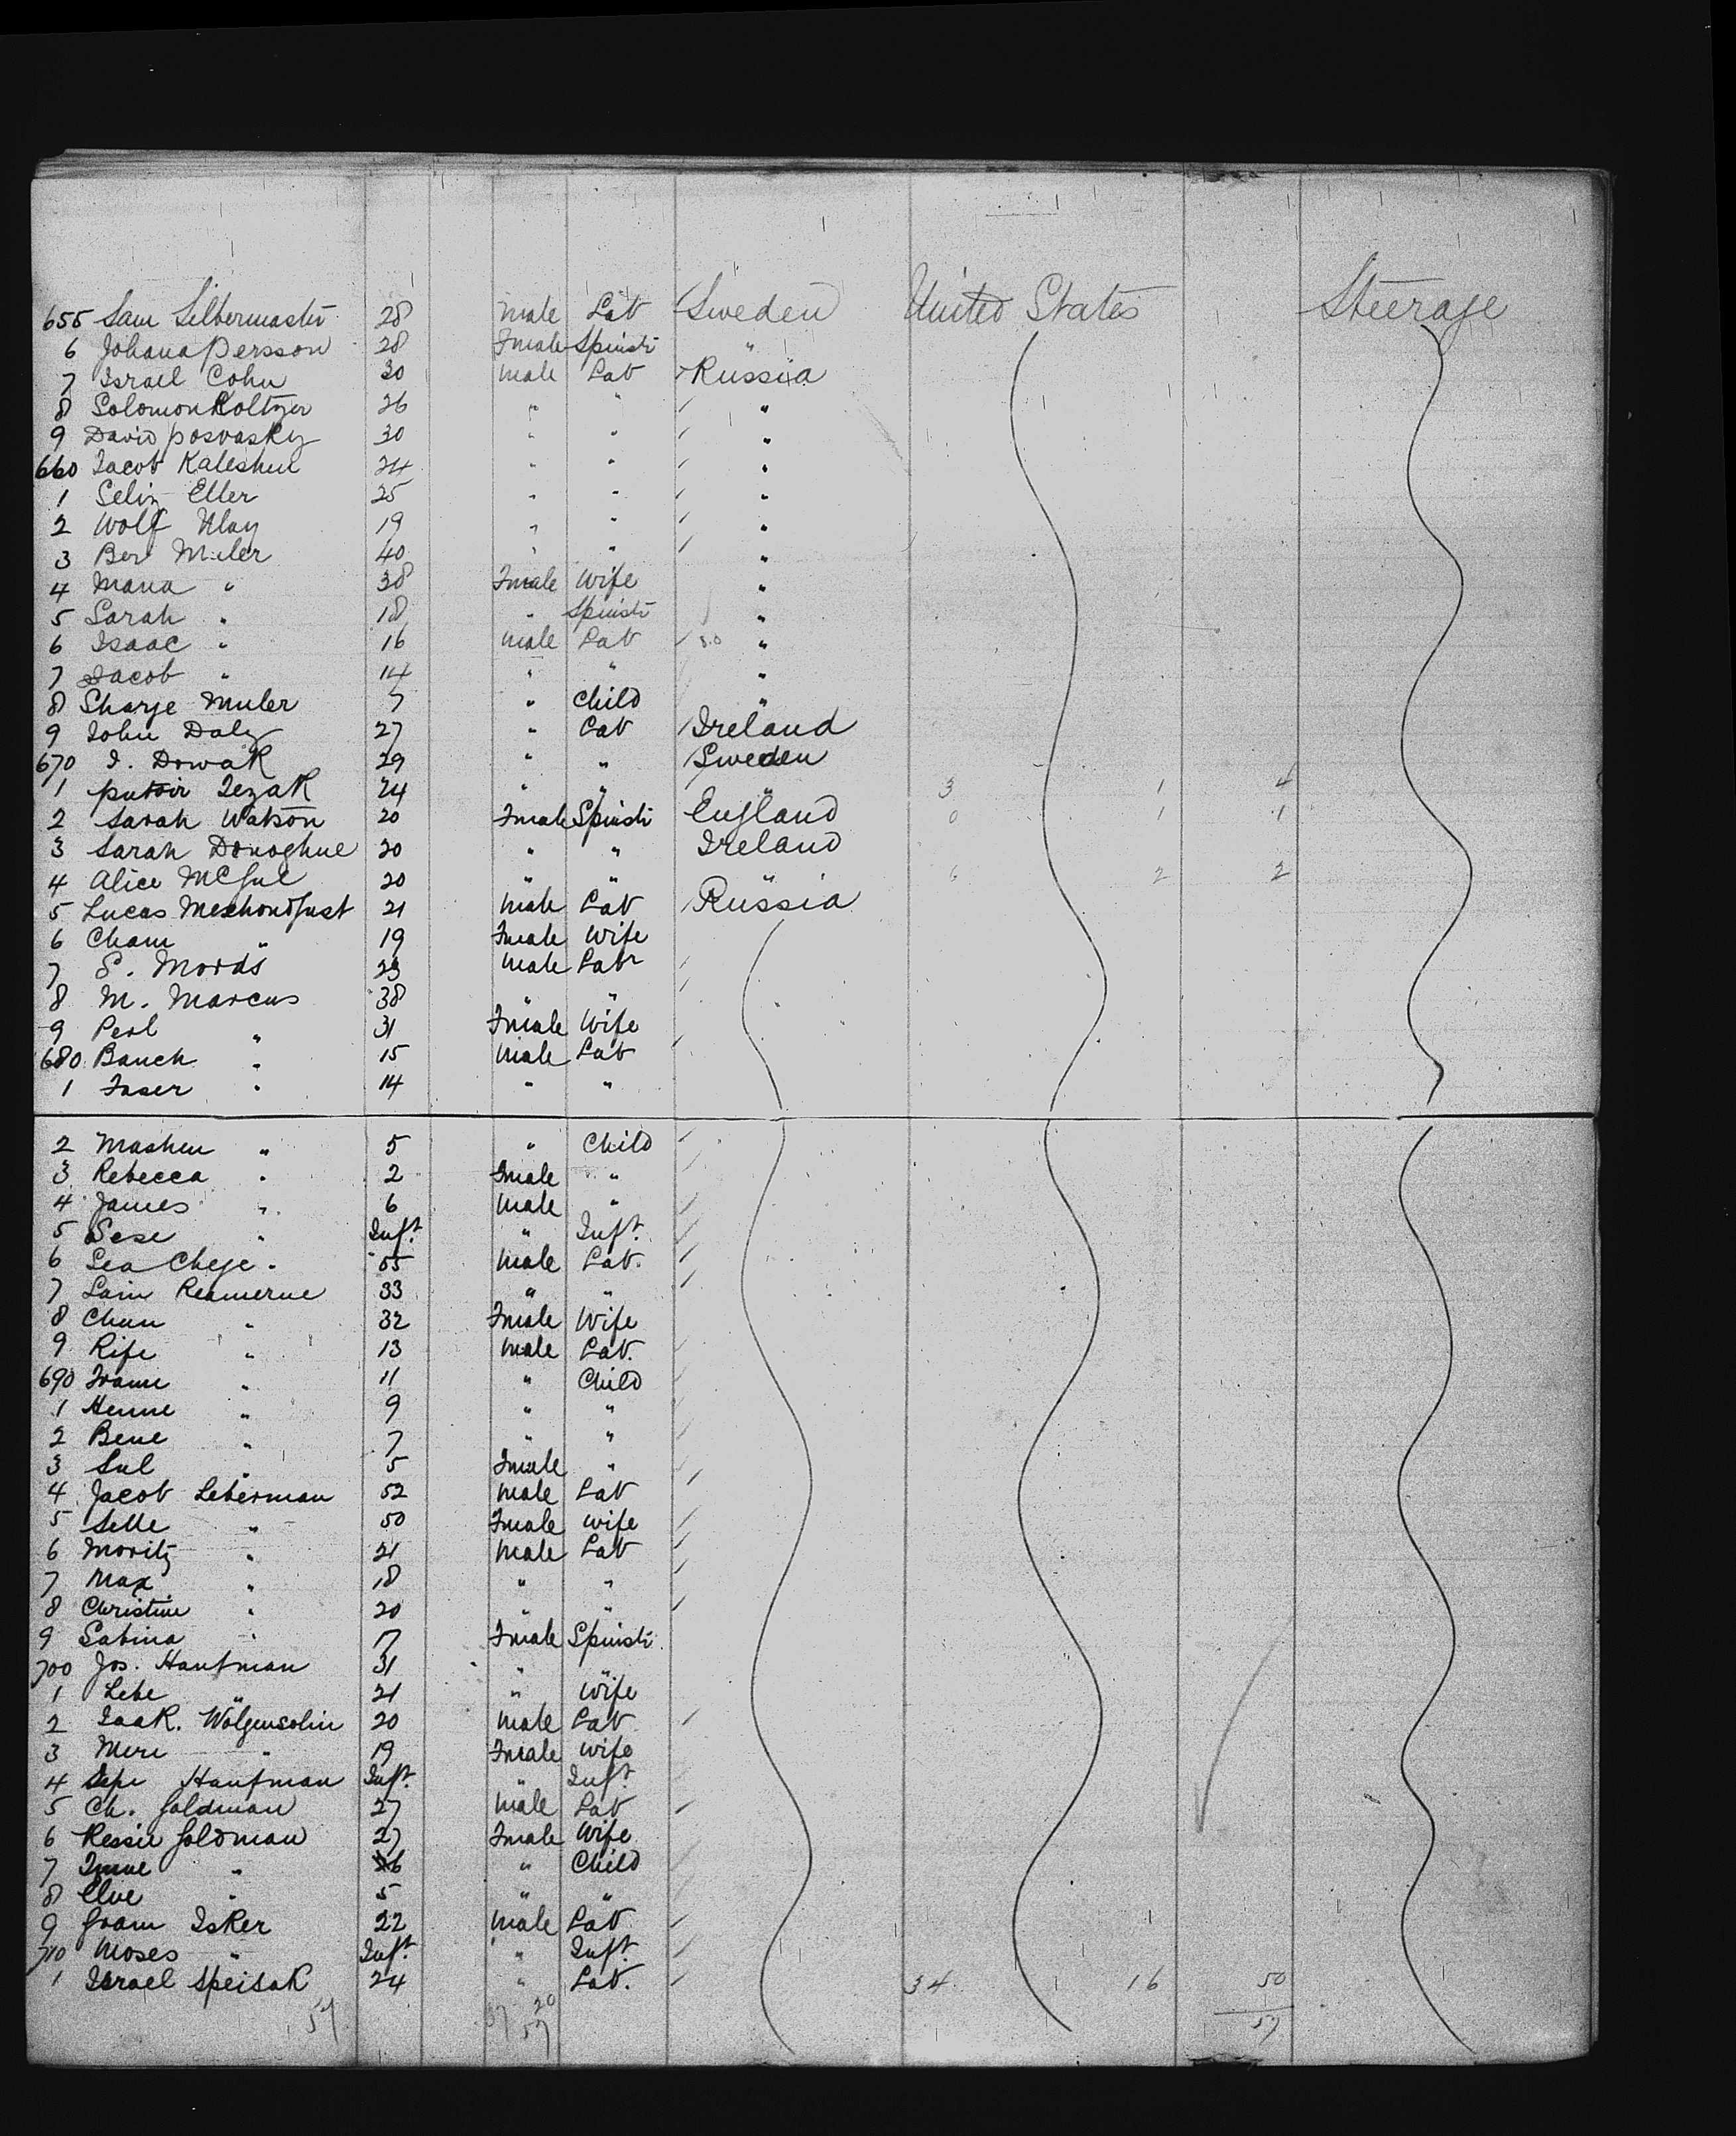 655 Sam Silbermaster 28 Male Lab Sweden United States Steerage
6 Johana Persson 28 Fmale Spinstr "
7 Israel Cohn 30 Male Lab Russia
8 Solomon Koltzer 26 " " "
9 David Posvasky 30 " " "
660 Jacob Kaleshue 24 " " "
1 Selig Eller 25 " " "
2 Wolf Ulay 19 " " "
3 Ber Muler 40 " " "
4 Maria " 38 Fmale Wife "
5 Sarah " 18 " Spinstr "
6 Isaac " 16 Male Lab "
7 Jacob " 14 " " "
8 Sharje Muler 7 " Child "
9 John Daly 27 " Lab Ireland
670 I. Dowak 29 " " Sweden
1 Jezak 24 " " " 3 1 4
2 Sarah Watson 20 Fmale Spinstr England 0 1 1
3 Sarah Donoghue 20 " " Ireland
4 Alice 20 " " " 2 2
5 Lucas 21 Male Lab Russia
6 Cham " 19 Fmale Wife
7 S. Mords 23 Male Labr
8 M. Marcus 38 " "
9 Perl " 31 Fmale Wife
680 Bauch " 15 Male Lab
1 Faser " 14 " "
2 Mashew " 5 " Child
3 Rebecca " 2 Fmale "
4 James " 6 Male "
5 Sese " Inft. " Inft.
6 Lea Cheje " 55 Male Lab.
7 Laim Reamerne 33 " "
8 Chun " 32 Fmale Wife
9 Rife " 13 Male Lab.
690 Frame " 11 " Child
1 Henne " 9 " "
2 Bene " 7 " "
3 Sul " 5 Fmale "
4 Jacob Leberman 52 Male Lab
5 Selle " 50 Fmale Wife
6 Moritz " 21 Male Lab
7 Max " 18 " "
8 Christine " 20 " "
9 Sabina " 17 Fmale Spinstr.
700 Jos. Haufman 31 " "
1 Lebe " 21 " Wife
2 Isak. Wolgensohn 20 Male Lab
3 Mere " 19 Fmale Wife
4 Haufman Inft. " Inft.
5 Ch. Goldman 27 Male Lab
6 Ressie Goldman 27 Fmale Wife
7 " 6 " Child
8 Clue " 5 " "
9 Gram Isker 22 Male Lab
710 Moses " Inft. " Inft.
1 Israel Speisak 24 " Lab. 34 16 50
57 37 20 57
57